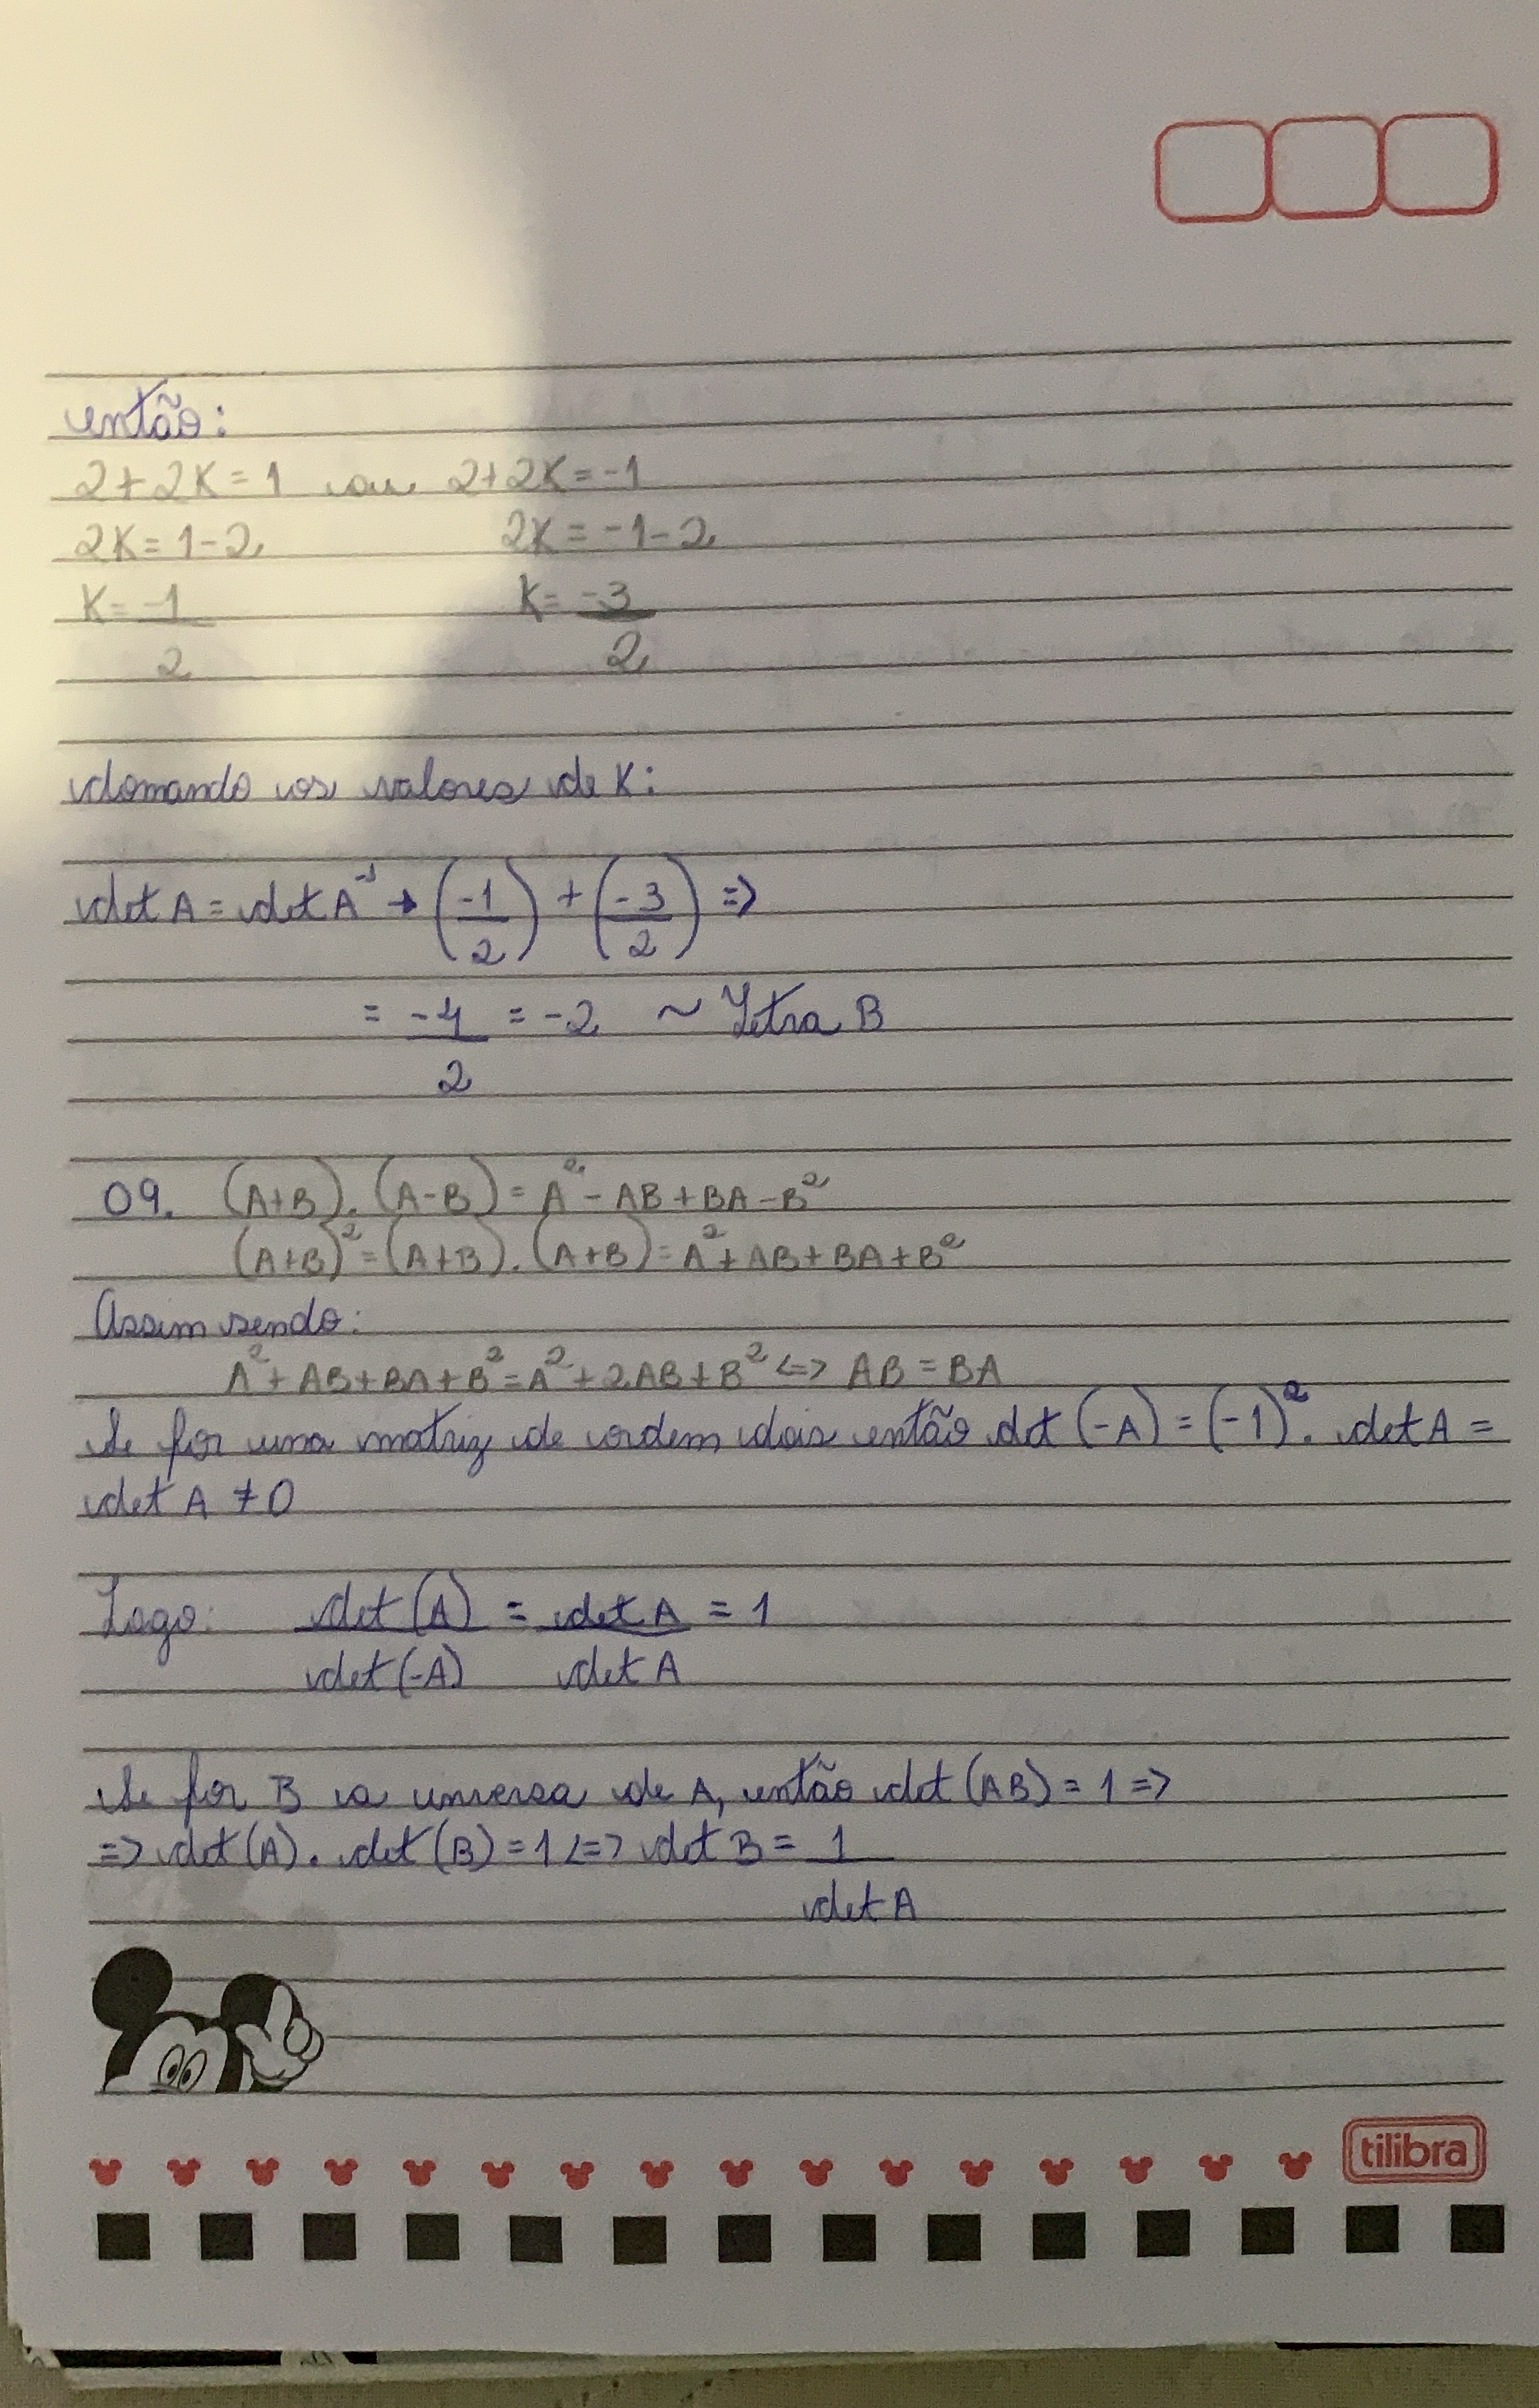 então:
2+2K=1 ou 2+2K=-1
2K=1-2 2K=-1-2
K=-1/2 K=-3/2
somando os valores de K:
det A = det A⁻¹ → (-1/2) + (-3/2) =>
= -4/2 = -2 ~ Letra B
09. (A+B).(A-B)=A²-AB+BA-B²
(A+B)²=(A+B).(A+B)=A²+AB+BA+B²
Assim sendo:
A²+AB+BA+B²=A²+2AB+B² <=> AB=BA
Se for uma matriz de ordem dois então det (-A) = (-1)². det A =
det A ≠ 0
Logo: det(A)/det(-A) = det A/det A = 1
Se for B a inversa de A, então det (AB) = 1 =>
=> det(A). det(B) = 1 <=> det B = 1/det A
tilibra